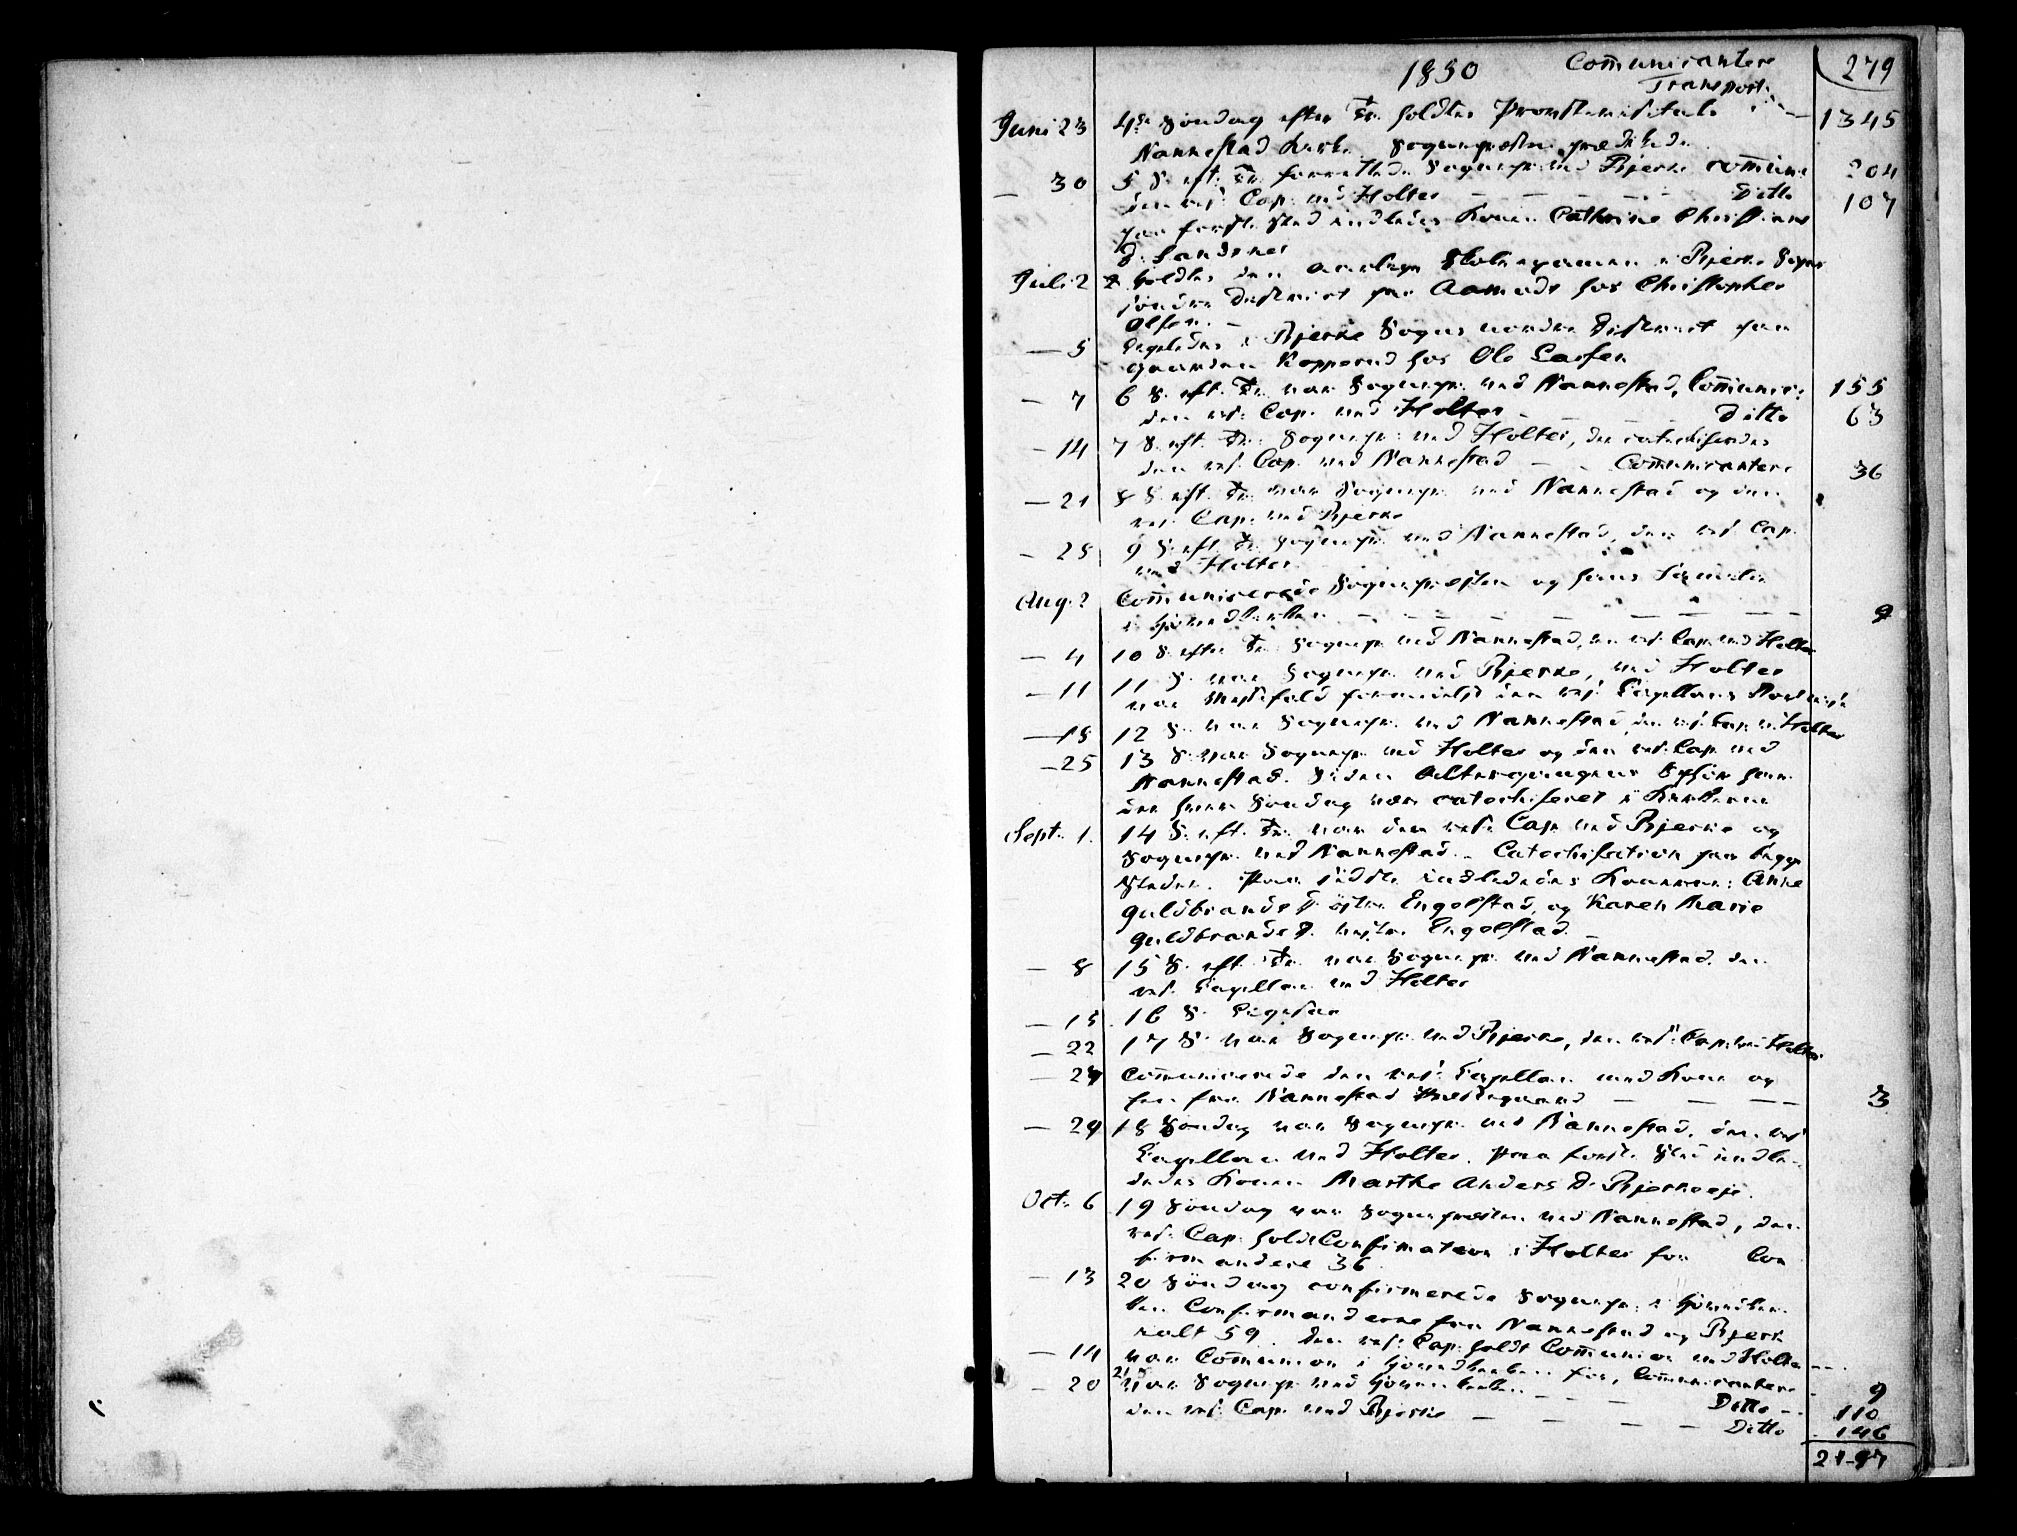 1850 Com̄unicantere 279
Transport
Juni 23 4de Söndag efter Tr. holdtes Provstevisitats 1345
Nannestad Kirke Sognepræsten prædikede
— 30 5 S. eft. Tr. forrettede Sognepr. ved Bjerke com̄unic 204
den res. Cap. ved Holter — — — Ditto 107
paa første Sted indledes Konen Cathrine Christians
D. Sandsnes
Juli 2 holdtes den aarlige Skoleexamen i Bjerke Sogns
söndre District paa Aamodt hos Christopher
Olsen. —
— 5 Ligeledes i Bjerke Sogns nordre District paa
Gaarden Kopperud hos Ole Larsen
— 7 6 S. eft. Tr. var Sognepr. ved Nannestad, Com̄unic: 155
den res. Cap. ved Holter — — — Ditto 63
— 14 7 S. eft. Tr. Sognepr. ved Holter, der catechiseredes
den res. Cap. ved Nannestad — - Com̄unicantere 36
— 21 8 S. eft. Tr. var Sognepr. ved Nannestad og den
res. Cap. ved Bjerke
— 28 9 S. eft. Tr. Sognepr. ved Nannestad, den res. Cap.
ved Holter
Aug. 2 Com̄unicerede Sognepræsten og hans Familie
i Hovedkirken — — — — — — 9
— 4 10 S. efter Tr. Sognepr. ved Nannestad, den res. Cap. ved Holter
— 11 11 S. var Sognepr. ved Bjerke, ved Holter
var Messefald formedelst den res. Capellans
— 18 12 S. var Sognepr. ved Nannestad, den res. Cap. v. Holter
— 25 13 S. var Sognepr. ved Holter og den res. Cap. ved
Nannestad. Siden Altergangens Ophör har
der hver Söndag været catechiseret i Kirkerne
Sept. 1. 14 S. eft. Tr. var den res. Cap. ved Bjerke og
Sognepr. ved Nannestad. - Catechisation paa begge
Steder. Paa sidste indledes Konerne: Anne
Guldbrands D. östre Engelstad, og Karen Marie
Guldbrands D. vestre Engelstad. —
— 8 15 S. eft. Tr. var Sognepr. ved Nannestad, den
res. Capellan ved Holter
— 15 16 S. Ligesaa
— 22 17 S. var Sognepr. ved Bjerke, den res. Cap. ved Holter
— 24 Com̄unicerede den res. Capellan med Kone og
en fra Nannestad Præstegaard — — — — 3
— 29 18 Söndag var Sognepr. ved Nannestad, den res.
Capellan ved Holter. Paa første Sted indle-
dedes Konen Marthe Anders D. Bjerkeeje.
Oct. 6 19 Söndag var Sognepræsten ved Nannestad, den
res. Cap. holdt Confirmation i Holter for Con
firmandere 36
— 13 20 Söndag confirmerede Sognepr. i Hovedkir-
ken Confirmanderne fra Nannestad og Bjerke
ialt 59. Den res. Cap. holdt Com̄union ved Holter — — -
— 14 var Com̄union i Hovedkirken for, Com̄unicantere - 9
— 20 21 S. var Sognepr. ved Hovedkirken — — Ditto - - 110
den res. Cap. ved Bjerke — — — — Ditto 146